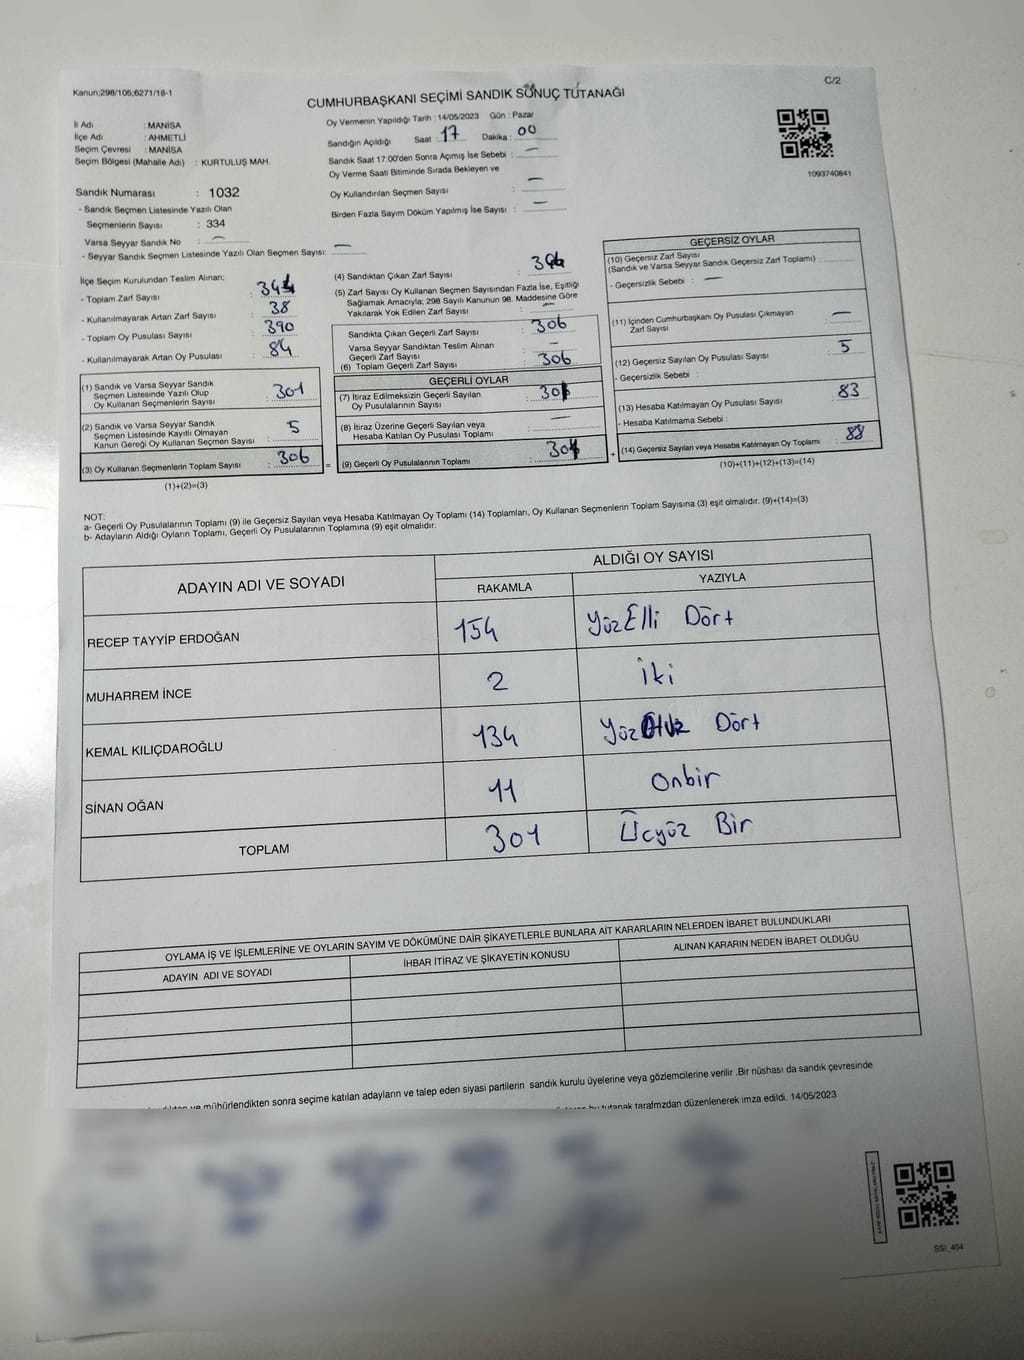 Kanun;298/105;6271/18-1
C/2
CUMHURBAŞKANI SEÇİMİ SANDIK SONUÇ TUTANAĞI
İl Adı : MANİSA
İlçe Adı : AHMETLİ
Seçim Çevresi : MANİSA
Seçim Bölgesi (Mahalle Adı) : KURTULUŞ MAH.
Oy Vermenin Yapıldığı Tarih : 14/05/2023 Gün : Pazar
Sandığın Açıldığı Saat : 17 Dakika : 00
Sandık Saat 17:00'den Sonra Açımış İse Sebebi : —
Oy Verme Saati Bitiminde Sırada Bekleyen ve
Oy Kullandırılan Seçmen Sayısı : —
Birden Fazla Sayım Döküm Yapılmış İse Sayısı : —
1093740841
Sandık Numarası : 1032
- Sandık Seçmen Listesinde Yazılı Olan
Seçmenlerin Sayısı : 334
Varsa Seyyar Sandık No : —
- Seyyar Sandık Seçmen Listesinde Yazılı Olan Seçmen Sayısı: —
İlçe Seçim Kurulundan Teslim Alınan;
- Toplam Zarf Sayısı : 344
- Kullanılmayarak Artan Zarf Sayısı : 38
- Toplam Oy Pusulası Sayısı : 390
- Kullanılmayarak Artan Oy Pusulası : 84
(1) Sandık ve Varsa Seyyar Sandık
Seçmen Listesinde Yazılı Olup
Oy Kullanan Seçmenlerin Sayısı : 301
(2) Sandık ve Varsa Seyyar Sandık
Seçmen Listesinde Kayıtlı Olmayan
Kanun Gereği Oy Kullanan Seçmen Sayısı : 5
(3) Oy Kullanan Seçmenlerin Toplam Sayısı : 306
(1)+(2)=(3)
(4) Sandıktan Çıkan Zarf Sayısı : 306
(5) Zarf Sayısı Oy Kullanan Seçmen Sayısından Fazla İse, Eşitliği
Sağlamak Amacıyla; 298 Sayılı Kanunun 98. Maddesine Göre
Yakılarak Yok Edilen Zarf Sayısı : —
Sandıkta Çıkan Geçerli Zarf Sayısı : 306
Varsa Seyyar Sandıktan Teslim Alınan
Geçerli Zarf Sayısı : —
(6) Toplam Geçerli Zarf Sayısı : 306
GEÇERLİ OYLAR
(7) İtiraz Edilmeksizin Geçerli Sayılan
Oy Pusulalarının Sayısı : 301
(8) İtiraz Üzerine Geçerli Sayılan veya
Hesaba Katılan Oy Pusulası Toplamı : —
= (9) Geçerli Oy Pusulalarının Toplamı : 301
GEÇERSİZ OYLAR
(10) Geçersiz Zarf Sayısı
(Sandık ve Varsa Seyyar Sandık Geçersiz Zarf Toplamı) :
- Geçersizlik Sebebi : —
(11) İçinden Cumhurbaşkanı Oy Pusulası Çıkmayan
Zarf Sayısı : —
(12) Geçersiz Sayılan Oy Pusulası Sayısı : 5
- Geçersizlik Sebebi :
(13) Hesaba Katılmayan Oy Pusulası Sayısı : 83
- Hesaba Katılmama Sebebi :
+ (14) Geçersiz Sayılan veya Hesaba Katılmayan Oy Toplamı : 88
(10)+(11)+(12)+(13)=(14)
NOT:
a- Geçerli Oy Pusulalarının Toplamı (9) ile Geçersiz Sayılan veya Hesaba Katılmayan Oy Toplamı (14) Toplamları, Oy Kullanan Seçmenlerin Toplam Sayısına (3) eşit olmalıdır. (9)+(14)=(3)
b- Adayların Aldığı Oyların Toplamı, Geçerli Oy Pusulalarının Toplamına (9) eşit olmalıdır.
ADAYIN ADI VE SOYADI ALDIĞI OY SAYISI
RAKAMLA YAZIYLA
RECEP TAYYİP ERDOĞAN 154 YüzElli Dört
MUHARREM İNCE 2 İki
KEMAL KILIÇDAROĞLU 134 YüzOtuz Dört
SİNAN OĞAN 11 Onbir
TOPLAM 301 Üçyüz Bir
OYLAMA İŞ VE İŞLEMLERİNE VE OYLARIN SAYIM VE DÖKÜMÜNE DAİR ŞİKAYETLERLE BUNLARA AİT KARARLARIN NELERDEN İBARET BULUNDUKLARI
ADAYIN ADI VE SOYADI İHBAR İTİRAZ VE ŞİKAYETİN KONUSU ALINAN KARARIN NEDEN İBARET OLDUĞU
ve mühürlendikten sonra seçime katılan adayların ve talep eden siyasi partilerin sandık kurulu üyelerine veya gözlemcilerine verilir .Bir nüshası da sandık çevresinde
bu tutanak tarafımzdan düzenlenerek imza edildi. 14/05/2023
SSI_404